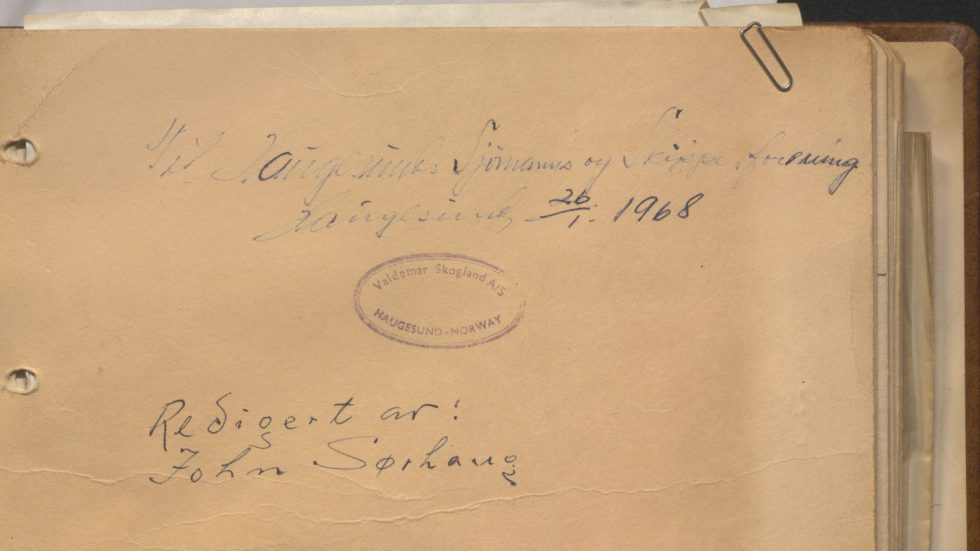 Til Haugesunds Sjömanns og Skipperforening
Haugesund 26/1. 1968
Valdemar Skogland A/S
HAUGESUND - NORWAY
Redigert av:
John Sørhaug